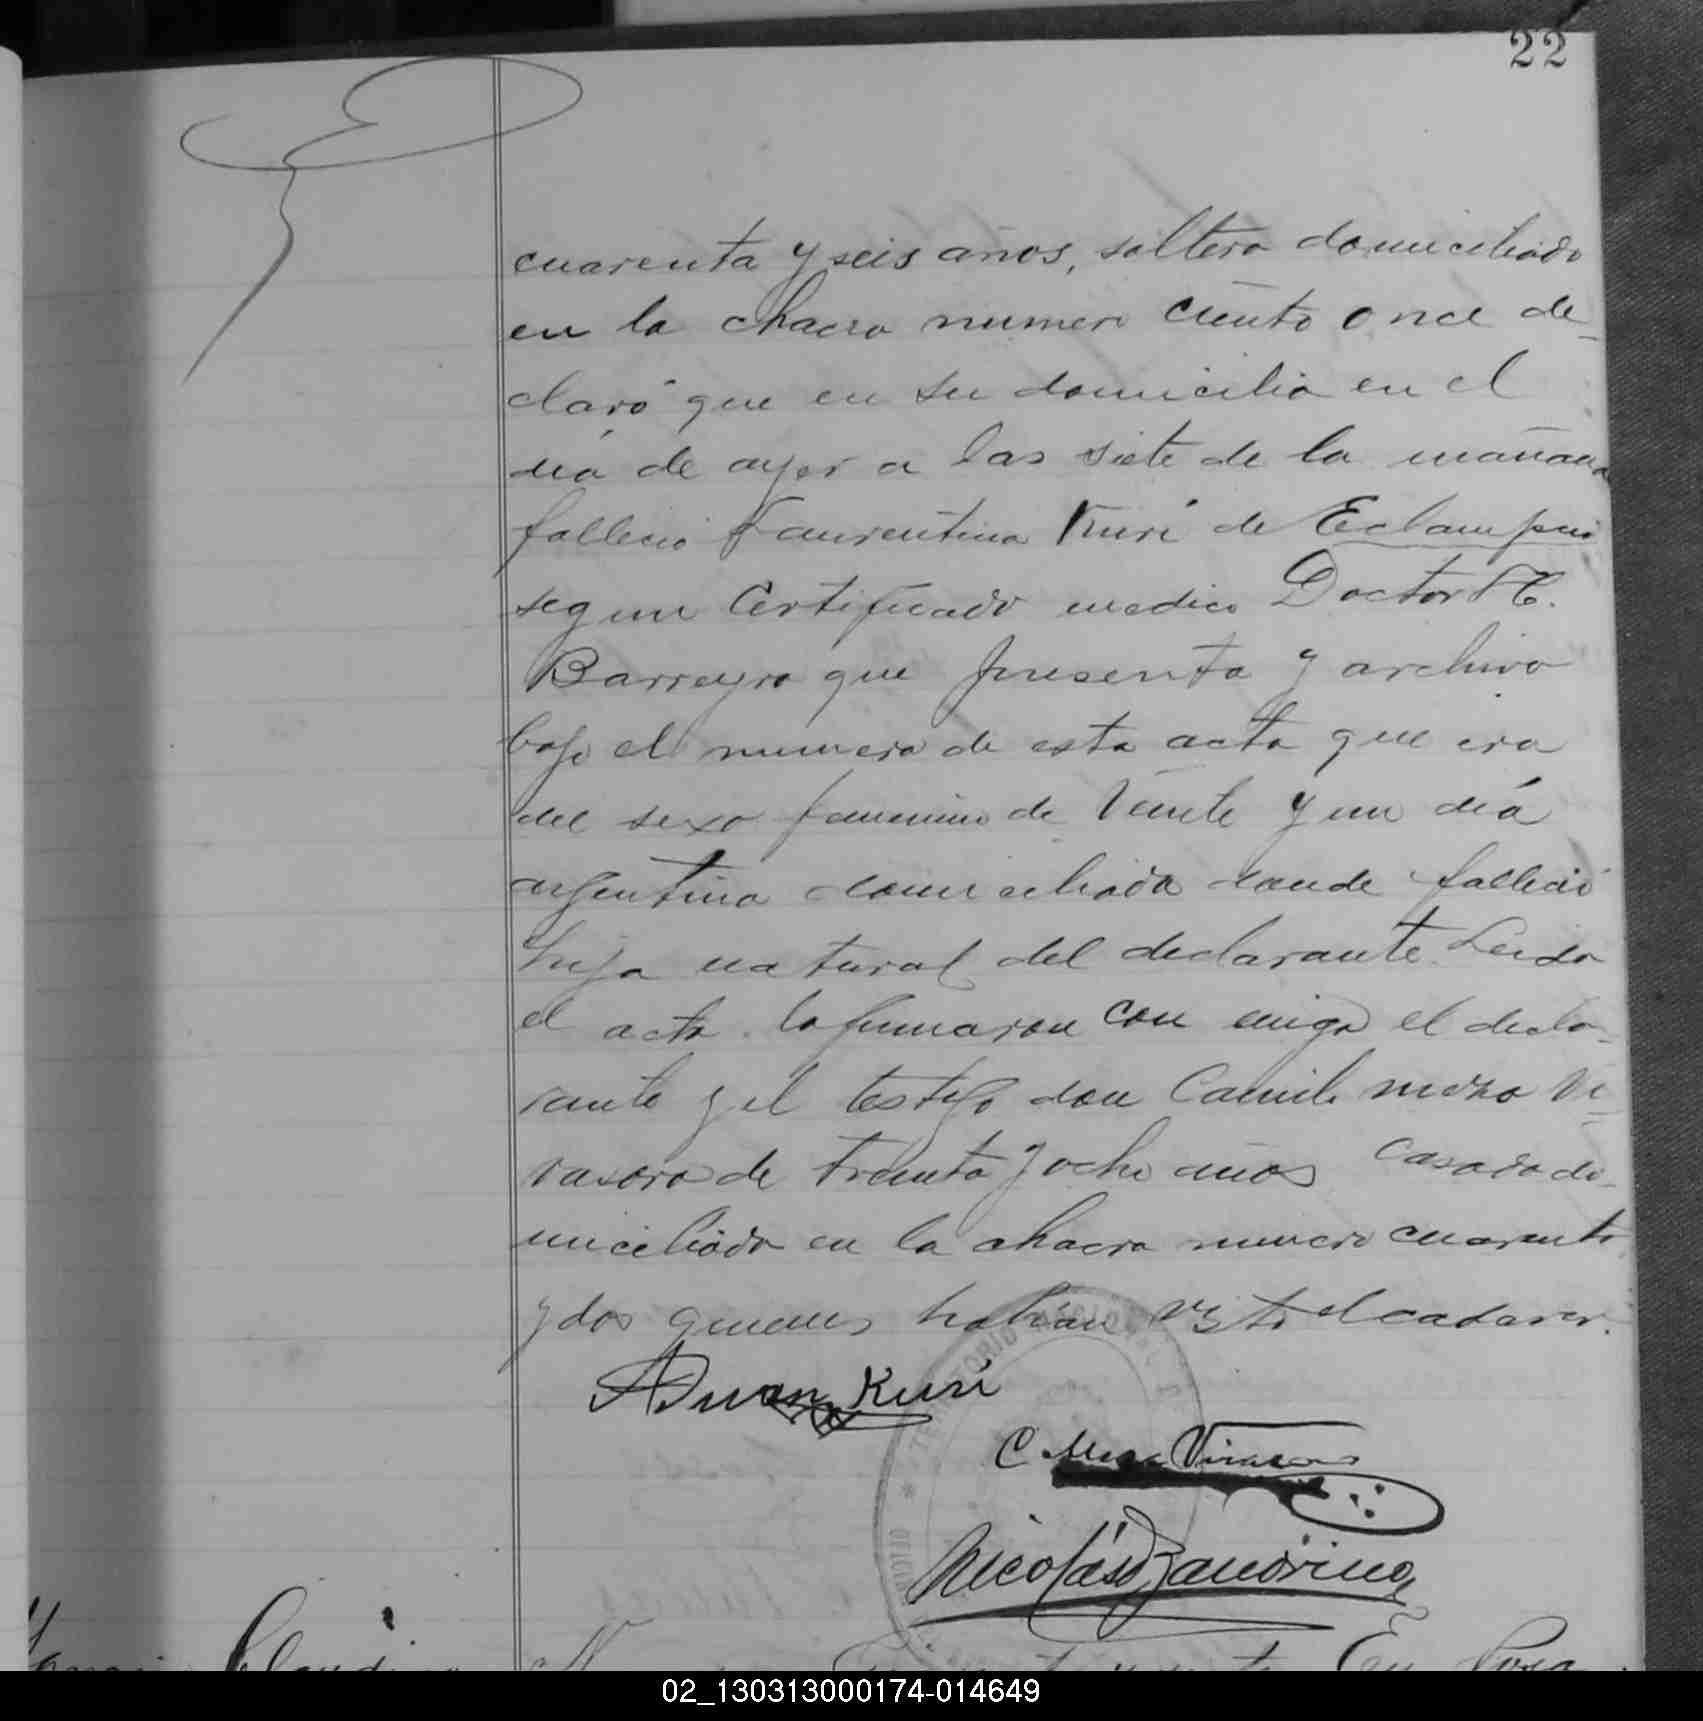 22
cuarenta y seis años, soltero domiciliado
en la chacra numero ciento once de-
claró que en su domicilio en el
día de ayer a las siete de la mañana
fallecio Laurentina Kuri de Eclampsia
segun Certificado medico Doctor
Barreyro que presenta y archivo
bajo el numero de esta acta que era
del sexo femenino de veinte y un día
argentina domiciliada donde falleció
hija natural del declarante. Leida
el acta la firmaron conmigo el decla-
rante y el testigo don Camilo meza Vi-
rasoro de treinta y ocho años casado do-
miciliado en la chacra numero cuarenta
y dos quienes habían visto el cadaver.
Kuri
C. Meza Virasoro
TERRITORIO NACIONAL
Nicolás Zandrino
02_130313000174-014649